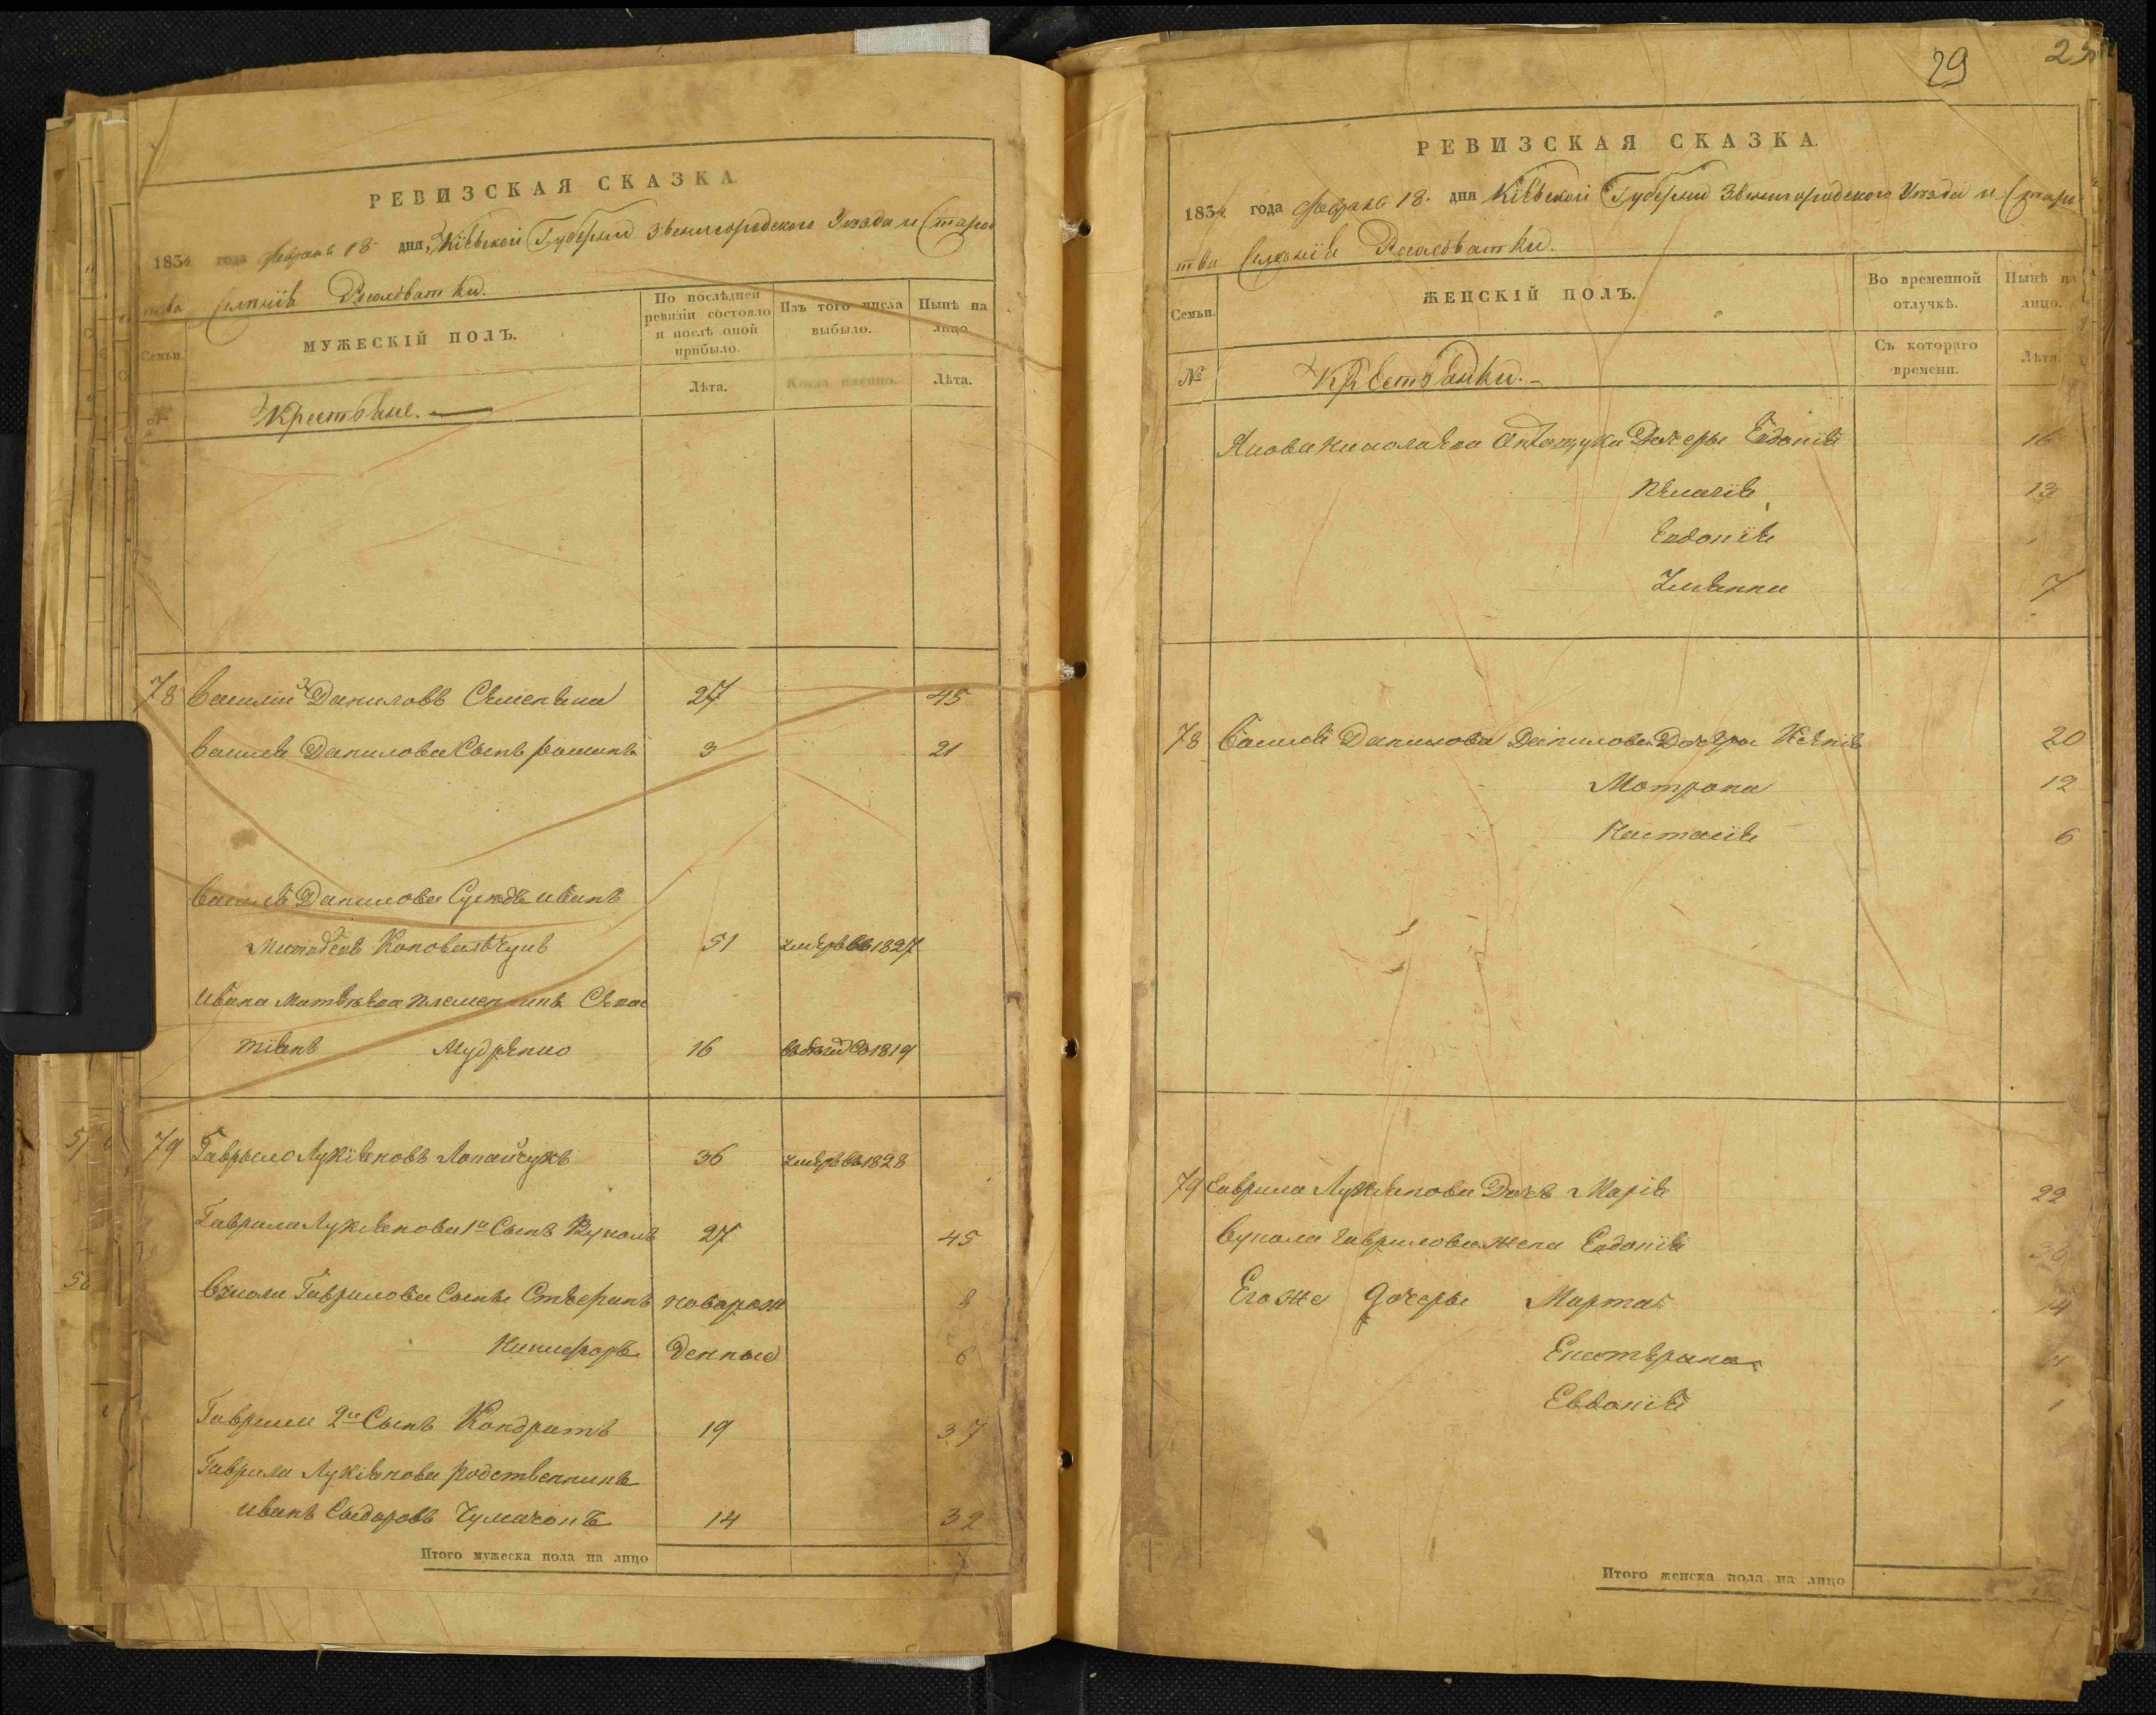 РЕВИЗСКАЯ СКАЗКА.
1834 года февраля 18 дня, Кіевской Губерніи Звенигородского Уезда и Старос
тва Селенія
Семьи.
МУЖЕСКІЙ ПОЛЪ.
По послѣдней ревизіи состояло и послѣ оной прибыло.
Изъ того числа выбыло.
Нынѣ на лицо.
№
Крестьяне.
Лѣта.
Когда именно.
Лѣта.
78 Василий Даниловъ 27 45
Василя Данилова Сынъ 3 21
Василя Данилова Суседъ иванъ
51 умеръ въ 1827
ивана племенникъ Севас
тіянъ Мудренко 16 1819
51
79 Гаврыло Лукіяновъ 36 умеръ въ 1828
Гаврила Лукіянова 1й Сынъ Вуколъ 27 45
56
Вукола Гаврилова Сыны Стефанъ новорож 8
Никифоръ денные 6
Гаврила 2й Сынъ Кондратъ 19 37
Гаврила Лукіянова родственникъ
иванъ Сыдоровъ Чумаченъ 14 32
Итого мужеска пола на лицо 7
29
25
РЕВИЗСКАЯ СКАЗКА.
1834 года февраля 18. дня Кіевской Губерніи Звенигородского Уезда и Старос
тва Селенія
Семьи.
ЖЕНСКІЙ ПОЛЪ.
Во временной отлучкѣ.
Нынѣ на лицо.
№
Крестьянки.
Съ котораго времени.
Лѣта.
Якова Николаева Дочеры Евдокія 16
Пелагія 13
Евдокія
Ульянна 7
78 Василя Данилова Данилова Дочеры Ксенія 20
Мотрона 12
Настасія 6
79 Гаврила Лукіянова Дочь Марія 22
Вукола Гаврилова жена Евдокія 36
Его же Дочеры Марта 14
Екатерина 4
Евдокія 1
Итого женска пола на лицо